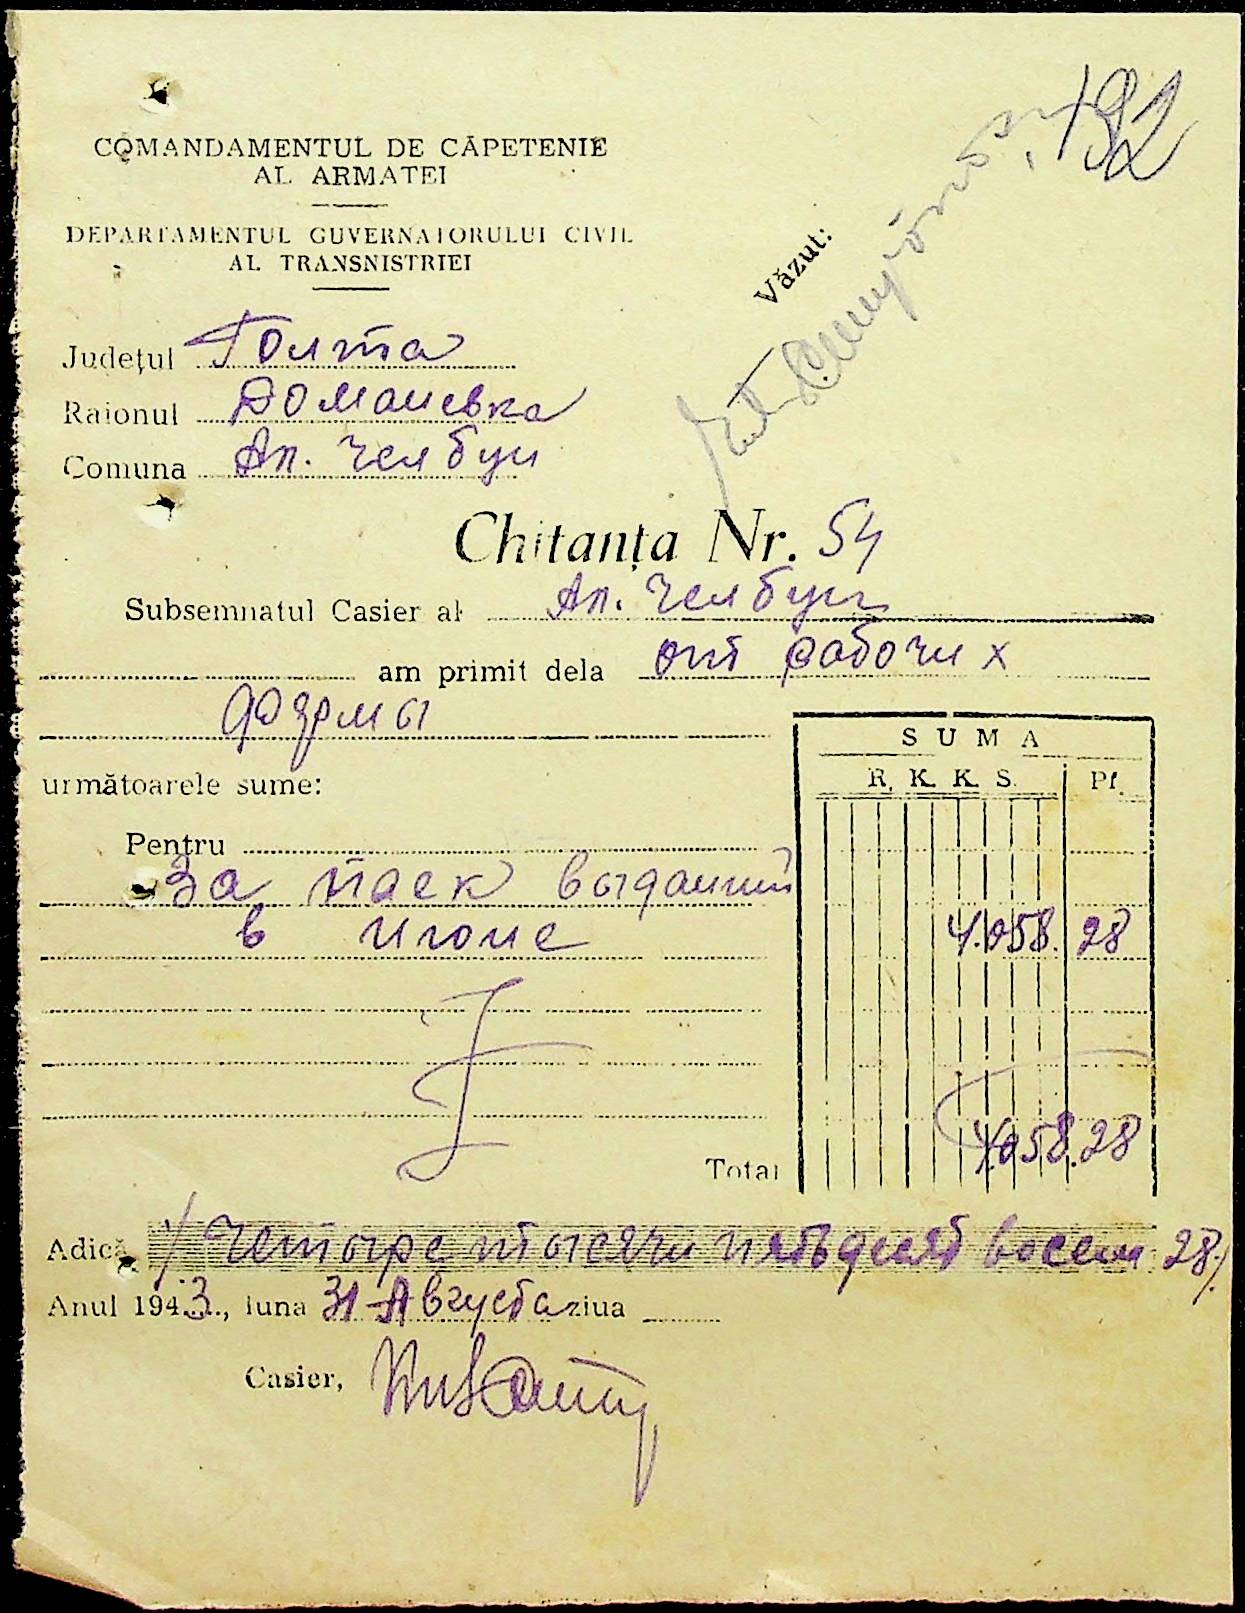 192
COMANDAMENTUL DE CĂPETENIE
AL ARMATEI
DEPARTAMENTUL GUVERNATORULUI CIVIL
AL TRANSNISTRIEI
Văzut:
Județul Голта
Raionul Доманевка
Comuna Ан. Челбуц
Chitanța Nr. 54
Subsemnatul Casier al Ан. Челбуц
am primit dela от рабочих
фермы
următoarele sume:
SUMA
R. K. K. S. Pf.
Pentru
За паек выданий
в июне 4.058. 28
Total 4058.28
Adică / Четыре тысячи пятьдесят восем 28/
Anul 1943., luna 31 Августа ziua
Casier,